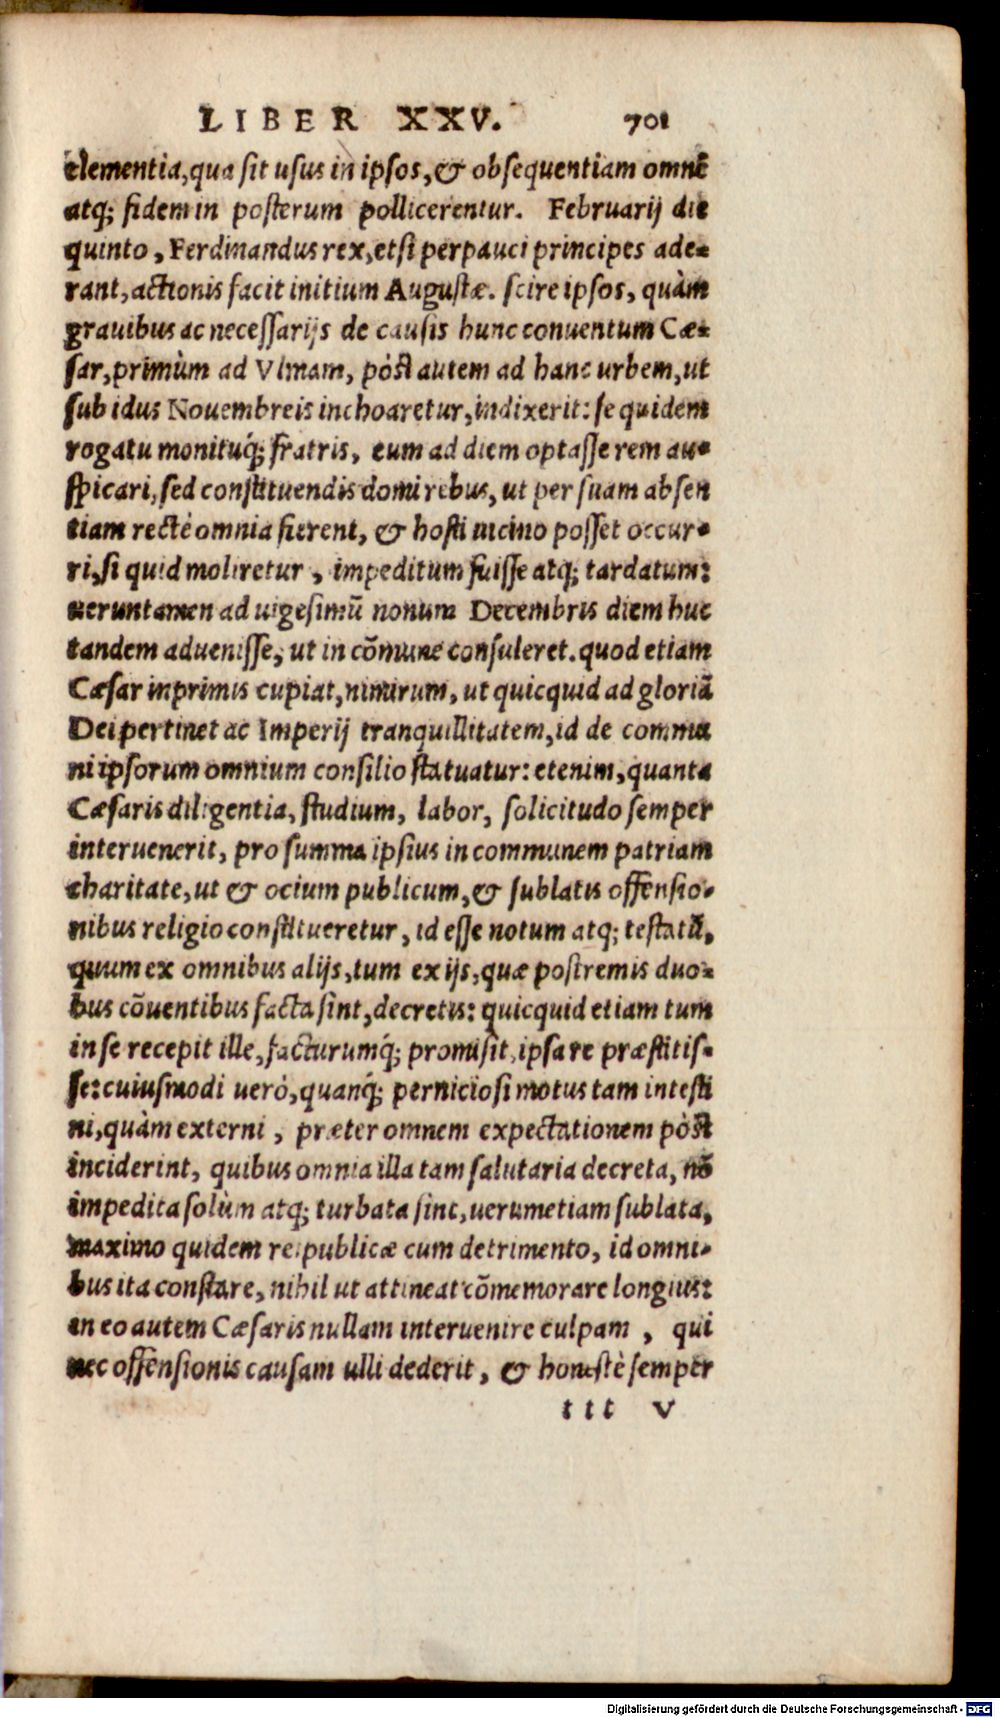 LIBER XXV. 701
clementia, qua sit usus in ipsos, & obsequentiam omnẽ
atq; fidem in posterum pollicerentur. Februarij die
quinto, Ferdinandus rex, etsi perpauci principes ade-
rant, actionis facit initium Augustæ. scire ipsos, quàm
grauibus ac necessarijs de causis hunc conuentum Cæ-
sar, primùm ad Vlmam, pòst autem ad hanc urbem, ut
sub idus Nouembreis inchoaretur, indixerit: se quidem
rogatu monituq́; fratris, eum ad diem optasse rem au-
spicari, sed constituendis domi rebus, ut per suam absen
tiam rectè omnia fierent, & hosti uicino posset occur-
ri, si quid moliretur, impeditum fuisse atq; tardatum:
ueruntamen ad uigesimũ nonum Decembris diem huc
tandem aduenisse, ut in cõmune consuleret. quod etiam
Cæsar inprimis cupiat, nimirum, ut quicquid ad gloriã
Dei pertinet ac Imperij tranquillitatem, id de commu
ni ipsorum omnium consilio statuatur: etenim, quanta
Cæsaris diligentia, studium, labor, solicitudo semper
interuenerit, pro summa ipsius in communem patriam
charitate, ut & ocium publicum, & sublatis offensio-
nibus religio constitueretur, id esse notum atq; testatũ,
quum ex omnibus alijs, tum ex ijs, quæ postremis duo-
bus cõuentibus facta sint, decretis: quicquid etiam tum
in se recepit ille, facturumq́; promisit, ipsa re præstitis-
se: cuiusmodi uerò, quanq́; perniciosi motus tam intesti
ni, quàm externi, præter omnem expectationem pòst
inciderint, quibus omnia illa tam salutaria decreta, nõ
impedita solùm atq; turbata sint, uerumetiam sublata,
maximo quidem reipublicæ cum detrimento, id omni-
bus ita constare, nihil ut attineat cõmemorare longius:
in eo autem Cæsaris nullam interuenire culpam, qui
nec offensionis causam ulli dederit, & honestè semper
ttt v
Digitalisierung gefördert durch die Deutsche Forschungsgemeinschaft - DFG